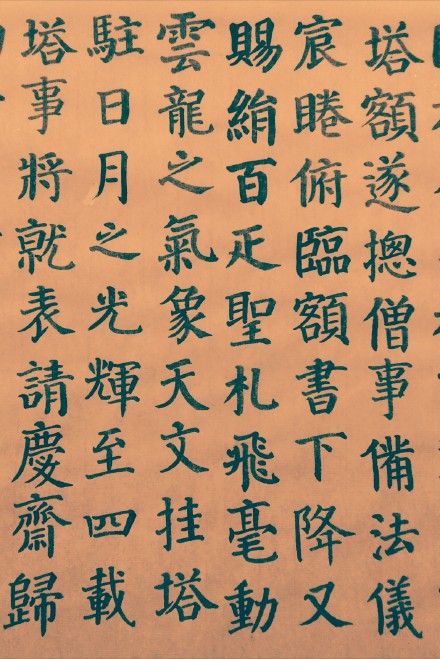 塔額遂摠僧事備法儀
宸睠俯臨額書下降又
賜絹百疋聖札飛毫動
雲龍之氣象天文挂塔
駐日月之光輝至四載
塔事將就表請慶齋歸